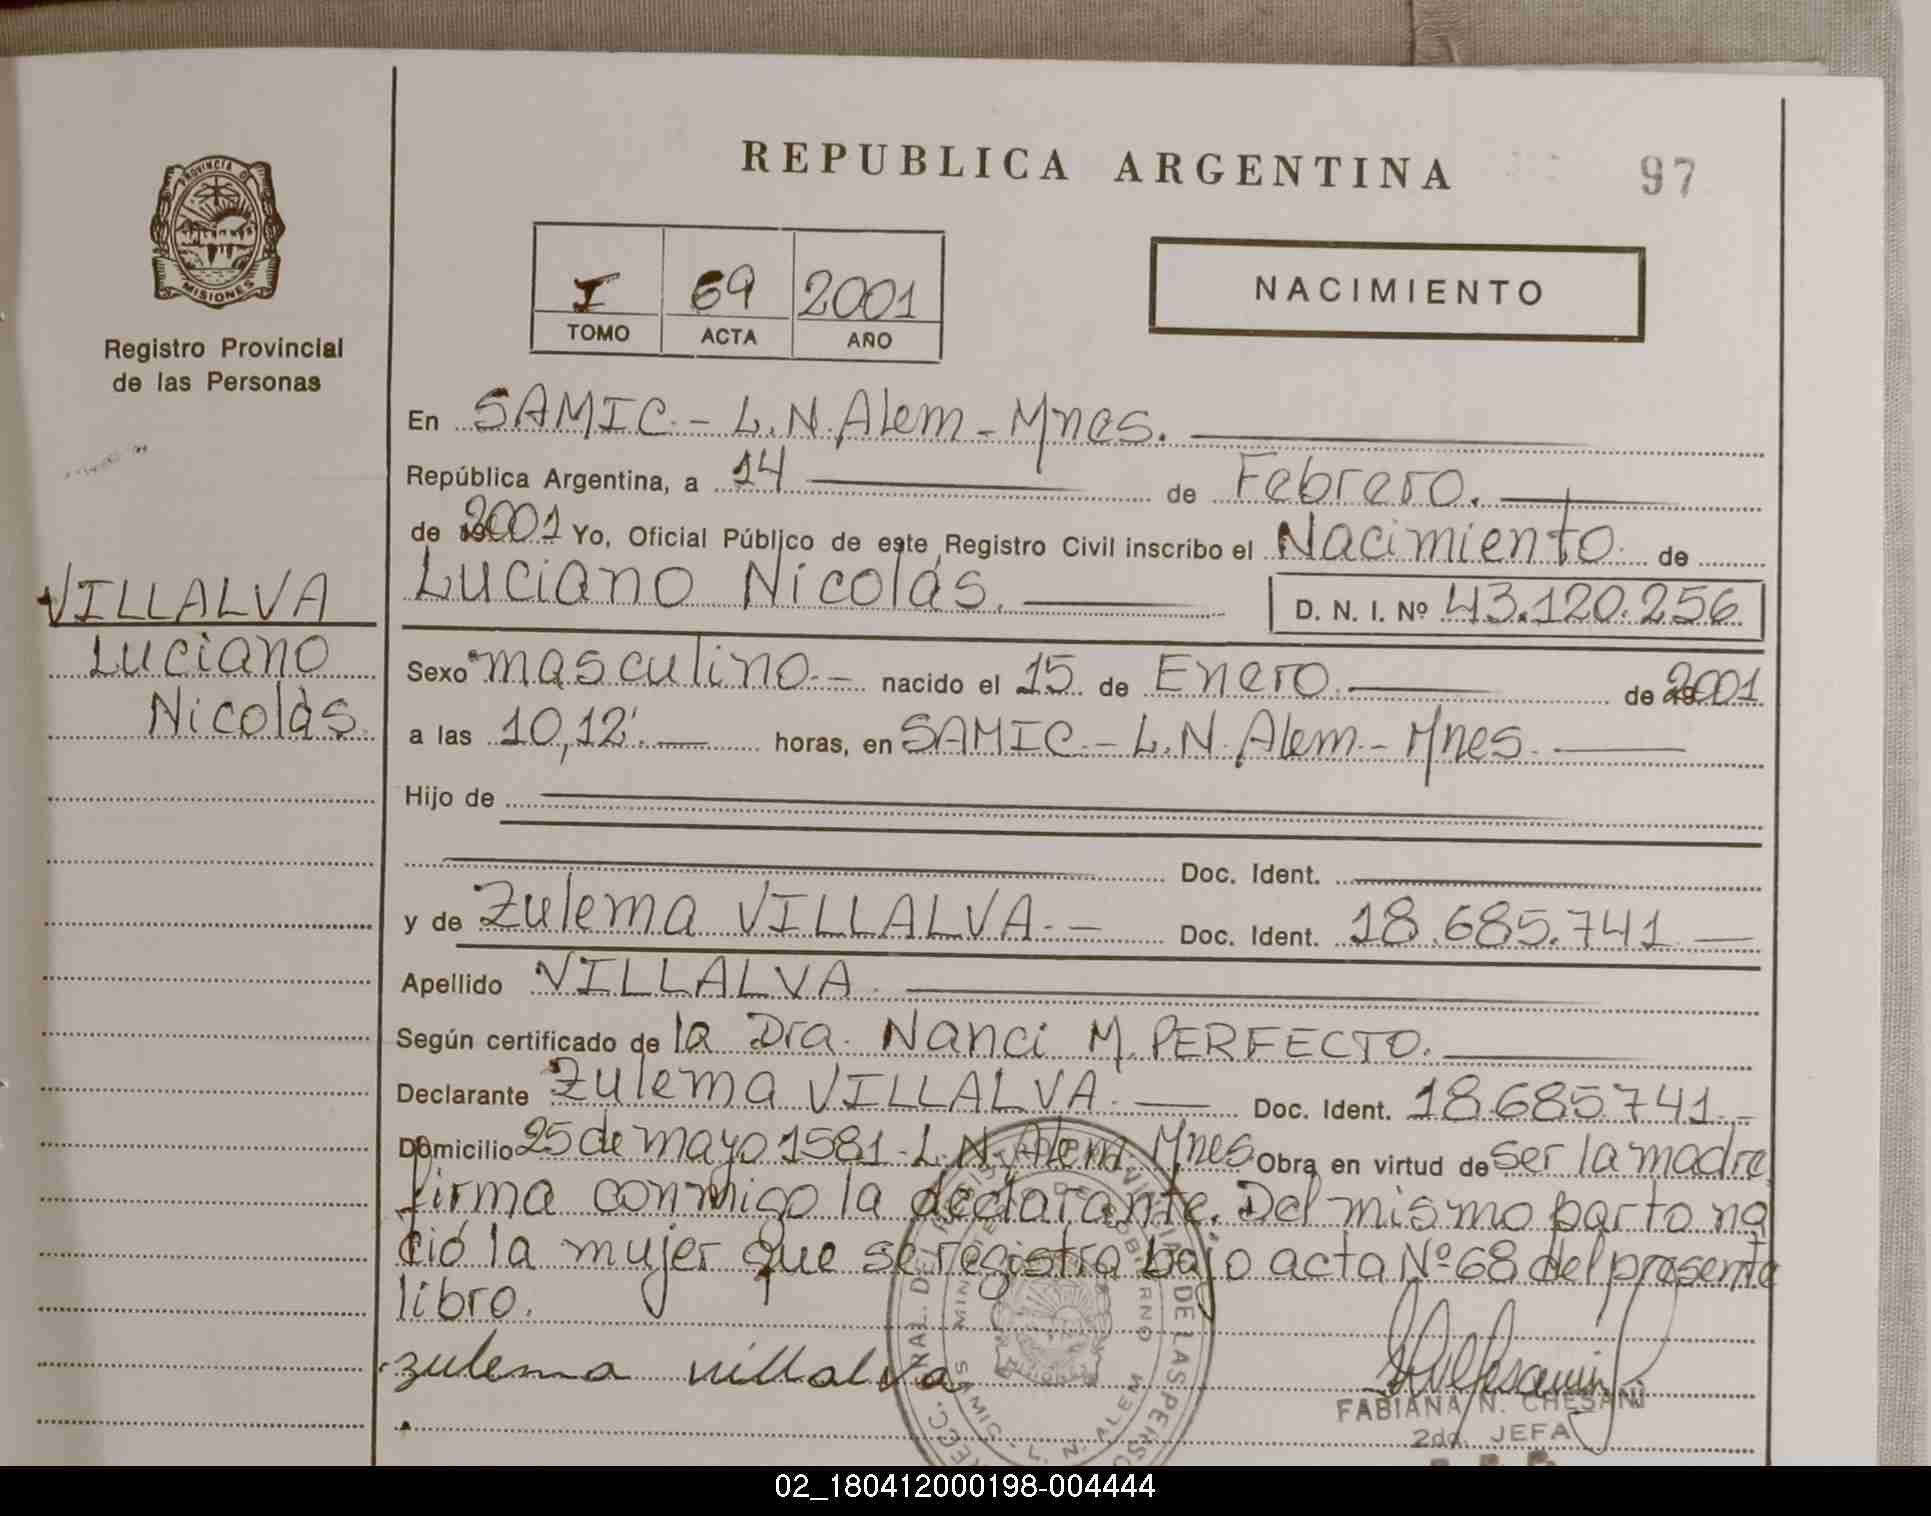 REPUBLICA ARGENTINA
97
PROVINCIA D
MISIONES
Registro Provincial
de las Personas
I 69 2001
TOMO ACTA AÑO
NACIMIENTO
En SAMIC.- L.N.Alem - Mnes.
República Argentina, a 14 de Febrero.
de 2001 Yo, Oficial Público de este Registro Civil inscribo el Nacimiento de
Luciano Nicolás. D. N. I. Nº 43.120.256
VILLALVA
Luciano
Nicolás.
Sexo masculino.- nacido el 15 de Enero. de 2001
a las 10,12'. horas, en SAMIC.- L.N. Alem.- Mnes.
Hijo de
Doc. Ident.
y de Zulema VILLALVA.- Doc. Ident. 18.685.741
Apellido VILLALVA.
Según certificado de la Dra. Nanci M. PERFECTO.
Declarante Zulema VILLALVA. Doc. Ident. 18.685.741.-
Domicilio 25 de mayo 1581-L.N. Alem. Mnes Obra en virtud de ser la madre
firma conmigo la declarante. Del mismo parto na
ció la mujer que se registra bajo acta Nº 68 del presente
libro.
zulema villalva
FABIANA N. CHESANI
2da. JEFA
DE LAS PERSO
SAMIC - L. N. ALEM
02_180412000198-004444